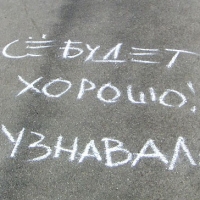 СЁ БУДЕТ
ХОРОШО!
УЗНАВАЛ